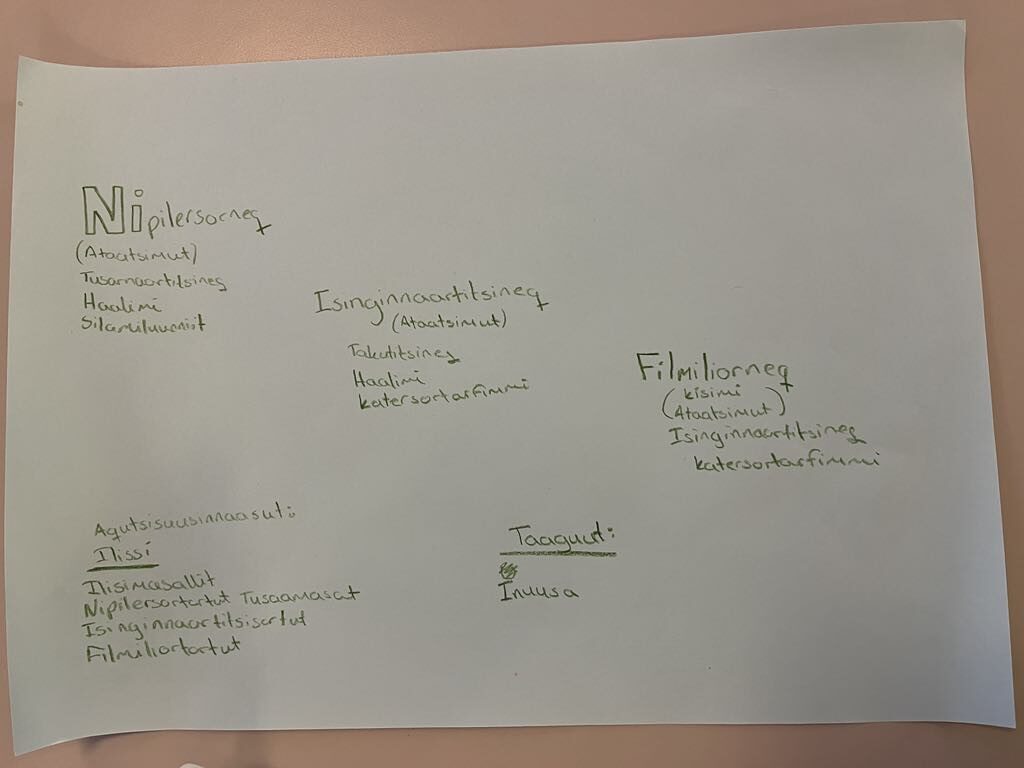 Nipilersorneq
(Ataatsimut)
Tusarnaartitsineq
Haalimi
Silamiluunniit
Isinginnaartitsineq
(Ataatsimut)
Takutitsineq
Haalimi
katersortarfimmi
Filmiliorneq
(kisimi
Ataatsimut)
Isinginnaartitsineq
katersortarfimmi
Aqutsisuusinnaasut:
Ilissi
Ilisimasallit
Nipilersortartut Tusaamasat
Isinginnaartitsisartut
Filmiliortartut
Taaguut:
Inuusa